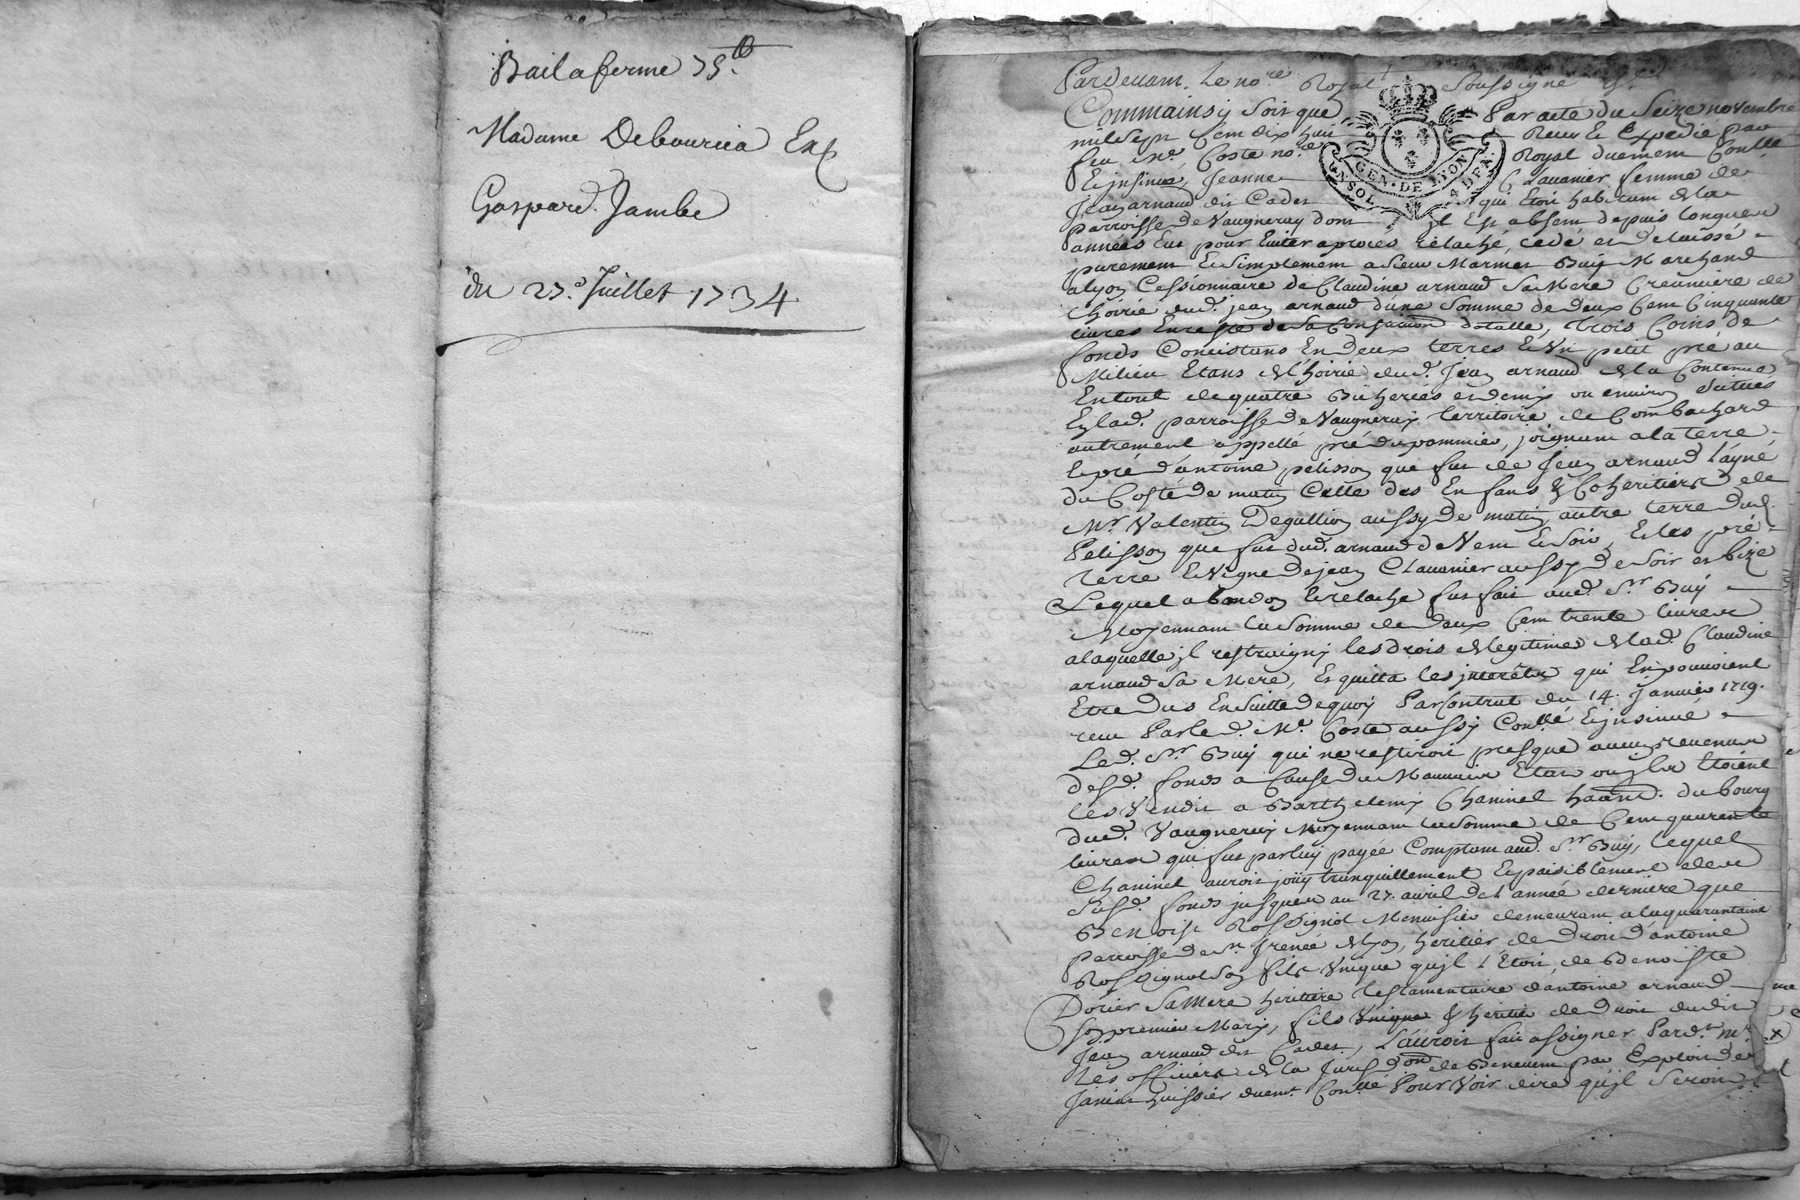 Bail a ferme 75.ᵗᵗ
Madame Debourica Ex
Gaspard Jambe
du 27.e Juillet 1734
Pardevant Le no.re Royal Soussigné
Commains y Soit que Par acte du Seize novembre
mil Sept Cent dix huit Receu Et Expedié par
feu Me. Coste no.re Royal duement Con.llé
Et jnsinué, Jeanne Chavanier femme de
Jean arnaud dit Cadet qui Etoit habitant de la
parroisse de Vaugneray dont jl Est absent depuis longues
années Eut pour Eviter a procès relaché, cedé et delaissé
purement Et simplement a Sieur Marmet Buy Marchand
a lyon Cessionnaire de Claudine arnaud Sa Mere Creanciere de
l'hoirie dud. jean arnaud d'une Somme de deux Cent Cinquante
livres En reste de Sa Constitution dotalle, trois Coins de
fonds Concistans En deux terres Et Un petit pré au
Milieu Etans de l'hoirie dud. Jean arnaud de la Contenue
En tout de quatre Bicherées et demy ou environ Situés
En lad. parroisse de Vaugneray territoire de Combachard
autrement appellé pré du pommier, joignant a la terre
Et pré d'antoine pelisson que fut de Jean arnaud L'ayné
du Costé de matin Celle des Enfans & Coheritiers de
Mr. Valentin Degallion aussy de matin, autre terre dud.
Pelisson que fut dud. arnaud de Vent Et Soir, Et les pré
terre Et Vigne de jean Chavanier aussy de Soir et bize
Lequel abandon Et relache fut fait aud. Sr. Buy
Moyennant la Somme de deux Cent trente livres
a laquelle jl restraigny les droits de legitime de lad. Claudine
arnaud Sa Mere, Et quitta les jnterêts qui En pouvoient
Etre dus En Suitte de quoy Par Contrat du 14. Janvier 1719.
receu Par led. Me. Coste aussy Con.llé Et jnsinué
Led. Sr. Buy qui ne restiroit presque aucun revenu
desd. fonds a Cause du Mauvais Etat ou jls Etoient
les Vendit a Barthelemy Chaninel habt. du bourg
dud. Vaugneray Moyennant la Somme de Cent quarente
livres qui fut par luy payée Comptant aud. Sr. Buy, lequel
Chaninel auroit joüy tranquillement Et paisiblement des
Susd. fonds jusques au 27. avril de l'année derniere que
Benoist Rossignol Menuisier demeurant a la quarantaine
parroisse de St. Irenée de lyon, heritier de droit d'antoine
Rossignol Son fils Unique qu'jl l'Etoit, de Benoiste
Dorier Sa Mere heritiere testamentaire d'antoine arnaud
Son premier Mary, fils Unique & heritier de droit dudit
Jean arnaud dit Cadet, L'auroit fait assigner Pard.t Mrs.
Les officiers de la Jurisd.on de Benevent par Exploit de
Janin huissier duem.t Con.llé Pour Voir dire qu'jl Seroit
GEN · DE LYON
4 DEN